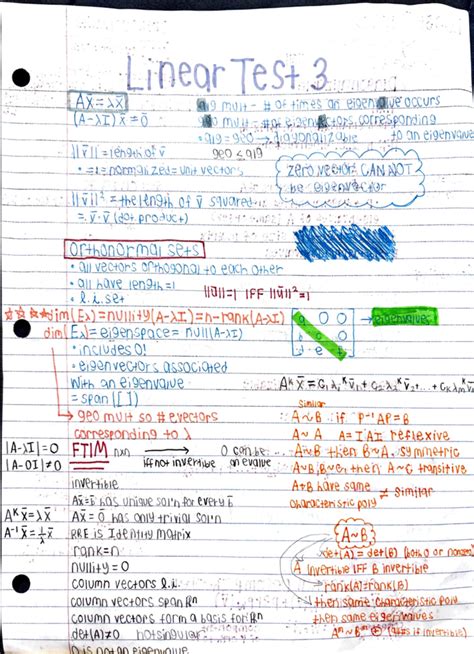 Linear Test 3
Ax̄ = λx̄
(A-λI)x̄ = 0̄
alg mult - # of times an eigenvalue occurs
geo mult - # of eigenvectors corresponding to an eigenvalue
alg = geo → diagonalizable
geo ≤ alg
||v̄|| = length of v̄
• = 1 = normalized = unit vectors
zero vector CAN NOT
be eigenvector
||v̄||² = the length of v̄ squared
= v̄·v̄ (dot product)
Orthonormal sets
• all vectors orthogonal to each other
• all have length = 1
• l.i. set
||ū||=1 IFF ||ū||²=1
dim(Eλ)=nullity(A-λI)=n-rank(A-λI)
→ eigenvalues
dim(Eλ)= eigenspace = null(A-λI)
• includes 0!
• eigenvectors associated
with an eigenvalue
= span {[ ]}
→ geo mult so # evectors
corresponding to λ
Aᴷx̄ = C₁λ₁ᴷv̄₁ + C₂λ₂ᴷv̄₂ + ... + CₖλₘᴷV̄ₘ
Similar
A~B if P⁻¹AP=B
A~A A=I⁻¹AI reflexive
A~B then B~A symmetric
A~B, B~C, then A~C transitive
A+B have same
characteristic poly
≠ Similar
|A-λI|=0
|A-0I|≠0
FTIM nxn
iff not invertible
0 can be
an evalue
invertible
Ax̄=b̄ has unique sol'n for every b̄
Ax̄=0̄ has only trivial sol'n
RRE is Identity Matrix
rank=n
nullity=0
column vectors l.i.
column vectors span ℝn
column vectors form a basis for ℝn
det(A)≠0 not singular
0 is not an eigenvalue
Aᴷx̄=λᴷx̄
A⁻¹x̄=1/λ x̄
A~B
det(A) = det(B) (both 0 or nonzero)
A invertible IFF B invertible
rank(A)=rank(B)
then same characteristic poly
then same eigenvalues
Aᵐ~Bᵐ